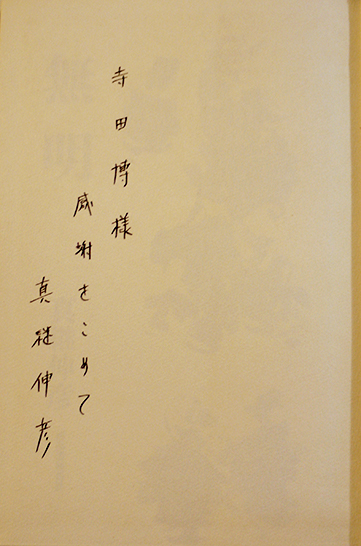 寺田博様
感謝をこめて
真継伸彦